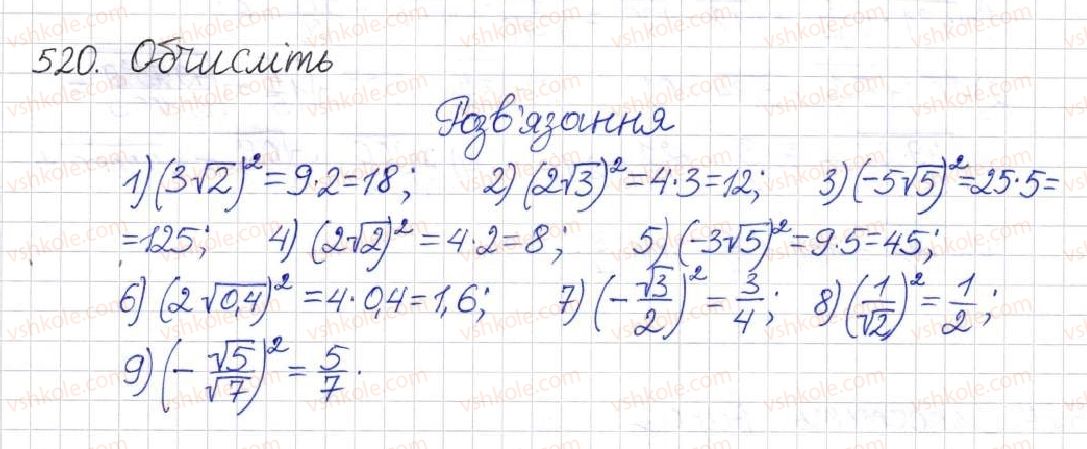 520. Обчисліть
Розв'язання
1) (3√2)² = 9·2 = 18; 2) (2√3)² = 4·3 = 12; 3) (-5√5)² = 25·5 =
= 125; 4) (2√2)² = 4·2 = 8; 5) (-3√5)² = 9·5 = 45;
6) (2√0,4)² = 4·0,4 = 1,6; 7) (-√3/2)² = 3/4; 8) (1/√2)² = 1/2;
9) (-√5/√7)² = 5/7.